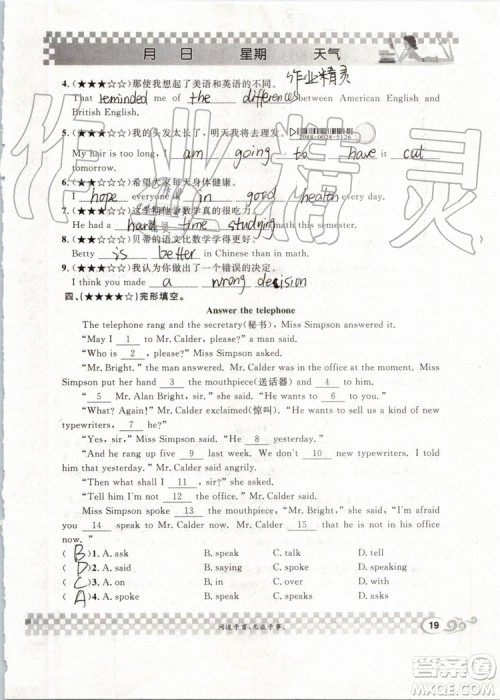 月 日 星期 天气
4.(★★★☆☆)那使我想起了美语和英语的不同。 作业精灵
That reminded me of the differences between American English and
British English.
5.(★★★☆☆)我的头发太长了,明天我将去理发。
My hair is too long. I am going to have it cut
tomorrow.
6.(★★☆☆☆)希望大家每天身体健康。
I hope everyone is in good health every day.
7.(★★★☆☆)这学期他学数学真的很吃力。
He had a hard time studying math this semester.
8.(★★☆☆☆)贝蒂的语文比数学学得更好。
Betty is better in Chinese than in math.
9.(★★★☆☆)我认为你做出了一个错误的决定。
I think you made a wrong decision
四、(★★★★☆)完形填空。
Answer the telephone
The telephone rang and the secretary(秘书), Miss Simpson answered it.
"May I 1 to Mr. Calder, please?" a man said.
"Who is 2 , please?" Miss Simpson asked.
"Mr. Bright." the man answered. Mr. Calder was in the office at the moment. Miss
Simpson put her hand 3 the mouthpiece(送话器) and 4 to him.
" 5 Mr. Alan Bright, sir." she said. "He wants to 6 to you."
"What? Again!" Mr. Calder exclaimed(惊叫). "He wants to sell us a kind of new
typewriters, 7 he?"
"Yes, sir," Miss Simpson said. "He 8 yesterday."
"And he rang up five 9 last week. We don't 10 new typewriters. I told
him that yesterday." Mr. Calder said.
"Then what shall I say?" Miss Simpson asked.
"Tell him I'm not 12 the office." Mr. Calder said.
Miss Simpson spoke 13 the mouthpiece, "Mr. Bright," she said. "I'm afraid
you 14 speak to Mr. Calder now. He's 15 and is not in his office
now."
( B )1. A. ask B. speak C. talk D. tell
( D )2. A. said B. spoke C. telling D. speaking
( C )3. A. in B. on C. over D. at
( A )4. A. spoke B. speaks C. talking D. asking
问道于盲,无益于事。
19
作业精灵
答案圈
MXQE.COM